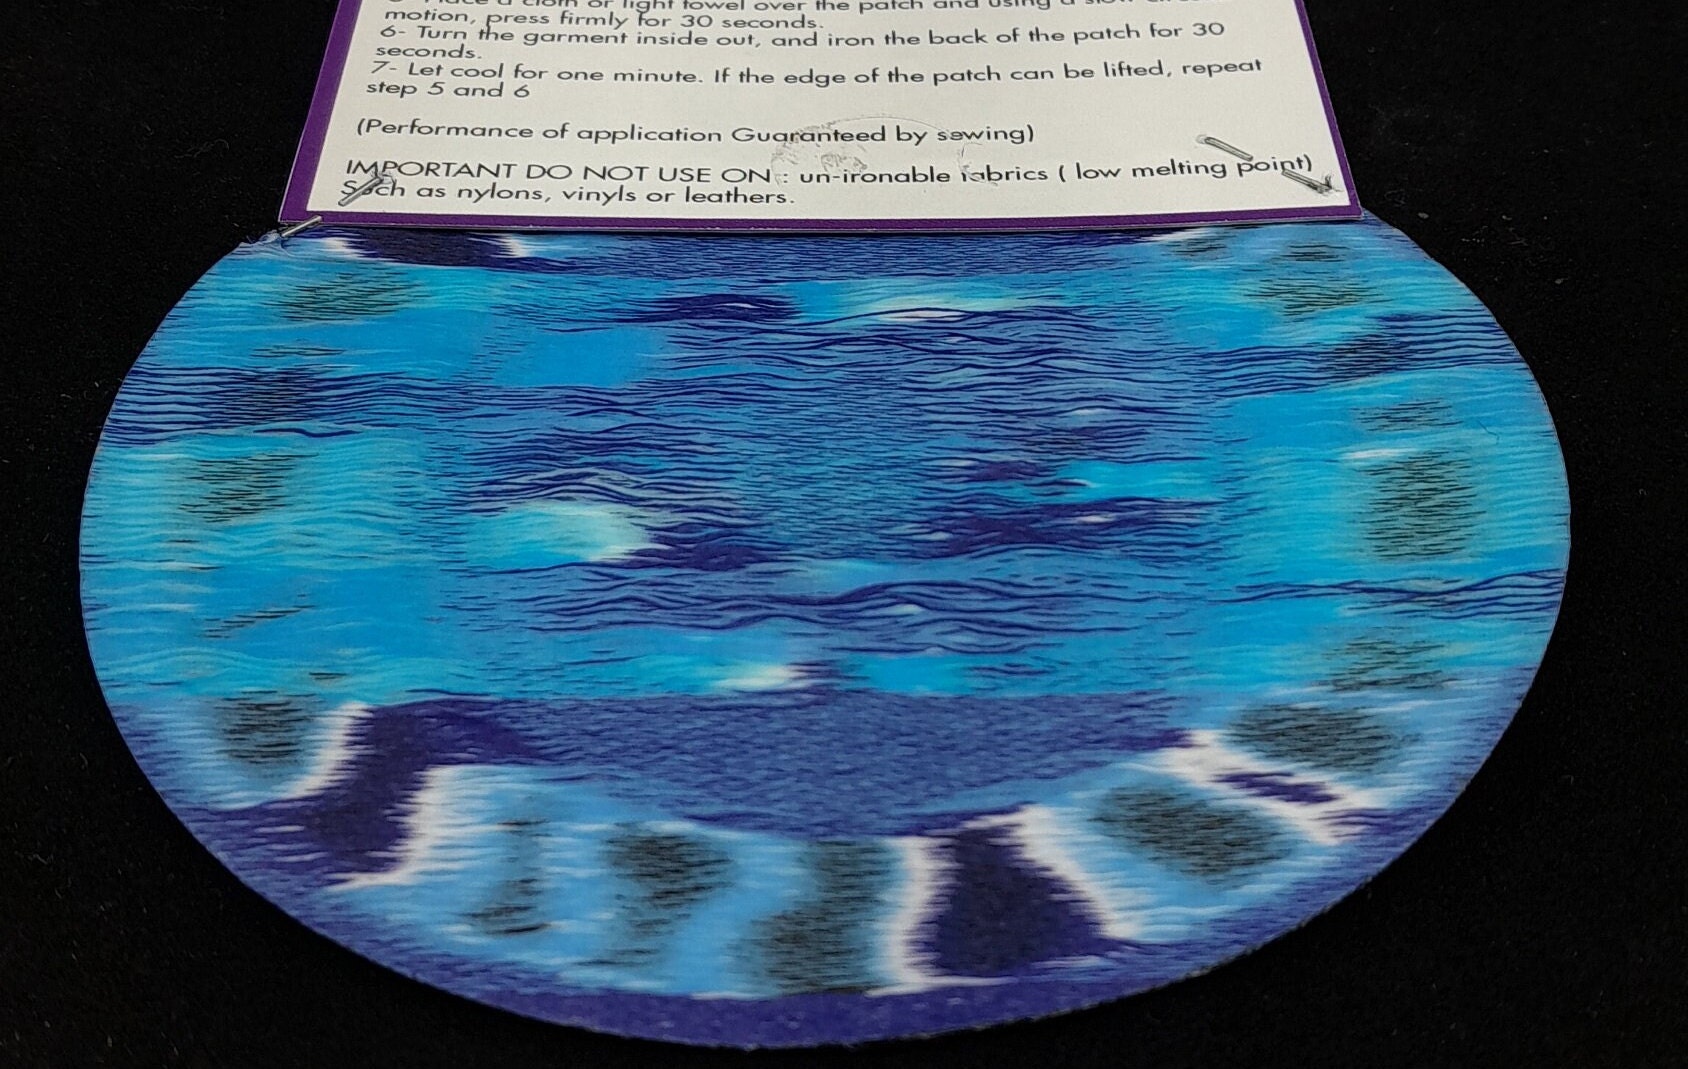 a cloth or light towel over the patch and using a slow
motion, press firmly for 30 seconds.
6- Turn the garment inside out, and iron the back of the patch for 30
seconds.
7- Let cool for one minute. If the edge of the patch can be lifted, repeat
step 5 and 6
(Performance of application Guaranteed by sewing)
IMPORTANT DO NOT USE ON : un-ironable fabrics ( low melting point)
Such as nylons, vinyls or leathers.